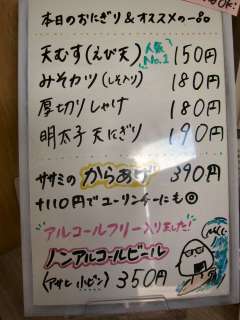 本日のおにぎり&オススメの一品
天むす(えび天) 人気No.1 150円
みそカツ(しそ入り) 180円
厚切りしゃけ 180円
明太子天にぎり 190円
ササミのからあげ 390円
+110円でユーリンチーにも◎
アルコールフリー入りました!
ノンアルコールビール
(アサヒ小ビン) 350円